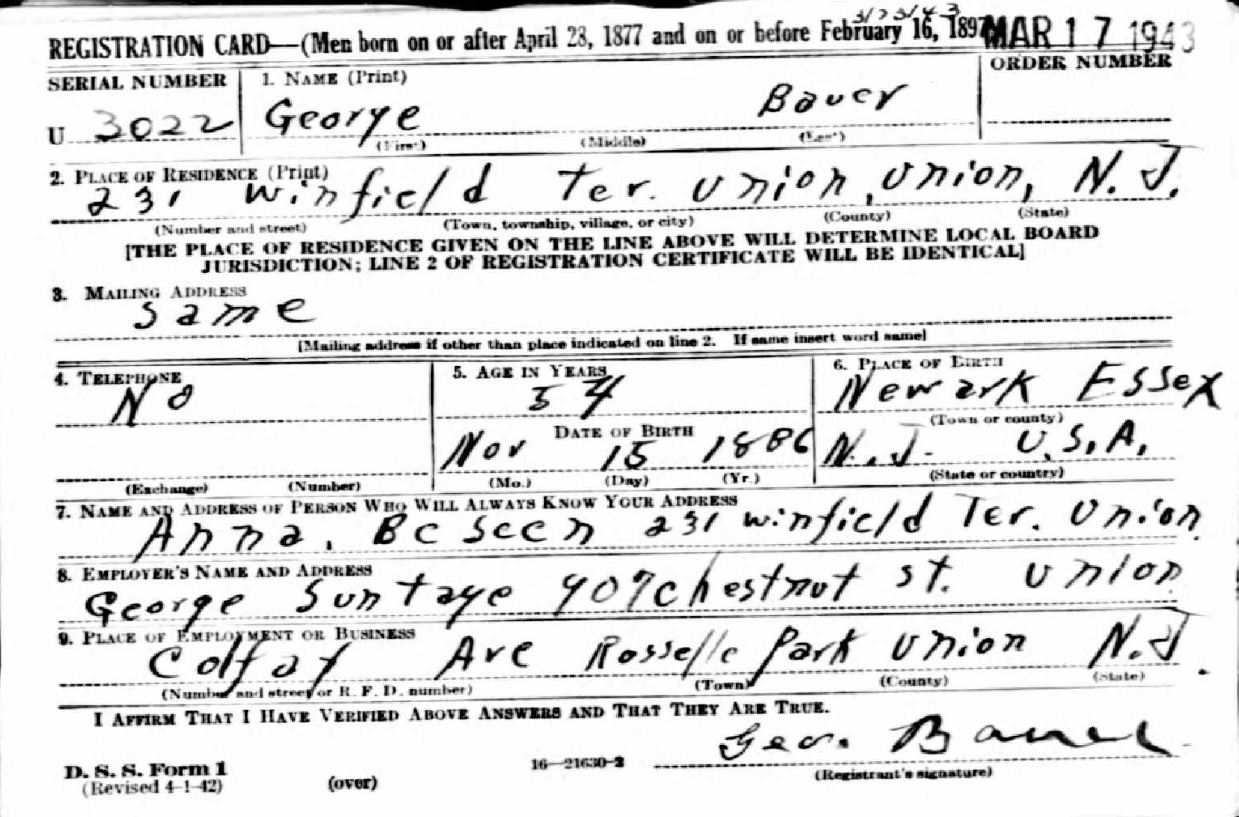 3/23/43
REGISTRATION CARD—(Men born on or after April 28, 1877 and on or before February 16, 1897 MAR 17 1943
SERIAL NUMBER 1. NAME (Print) ORDER NUMBER
U 3022 George Bauer
(First) (Middle) (Last)
2. PLACE OF RESIDENCE (Print)
231 Winfield Ter. Union, Union, N. J.
(Number and street) (Town, township, village, or city) (County) (State)
[THE PLACE OF RESIDENCE GIVEN ON THE LINE ABOVE WILL DETERMINE LOCAL BOARD
JURISDICTION; LINE 2 OF REGISTRATION CERTIFICATE WILL BE IDENTICAL]
3. MAILING ADDRESS
Same
[Mailing address if other than place indicated on line 2. If same insert word same]
4. TELEPHONE 5. AGE IN YEARS 6. PLACE OF BIRTH
No 54 Newark Essex
(Town or county)
DATE OF BIRTH
Nov 15 1886 N.J. U.S.A.
(Exchange) (Number) (Mo.) (Day) (Yr.) (State or country)
7. NAME AND ADDRESS OF PERSON WHO WILL ALWAYS KNOW YOUR ADDRESS
Anna. Beseen 231 Winfield Ter. Union
8. EMPLOYER'S NAME AND ADDRESS
George Suntaye 907 chestnut st. Union
9. PLACE OF EMPLOYMENT OR BUSINESS
Colfax Ave Rosselle Park Union N.J.
(Number and street or R. F. D. number) (Town) (County) (State)
I AFFIRM THAT I HAVE VERIFIED ABOVE ANSWERS AND THAT THEY ARE TRUE.
Geo. Bauer
D. S. S. Form 1
(Revised 4-1-42) (over) 16—21630-2 (Registrant's signature)